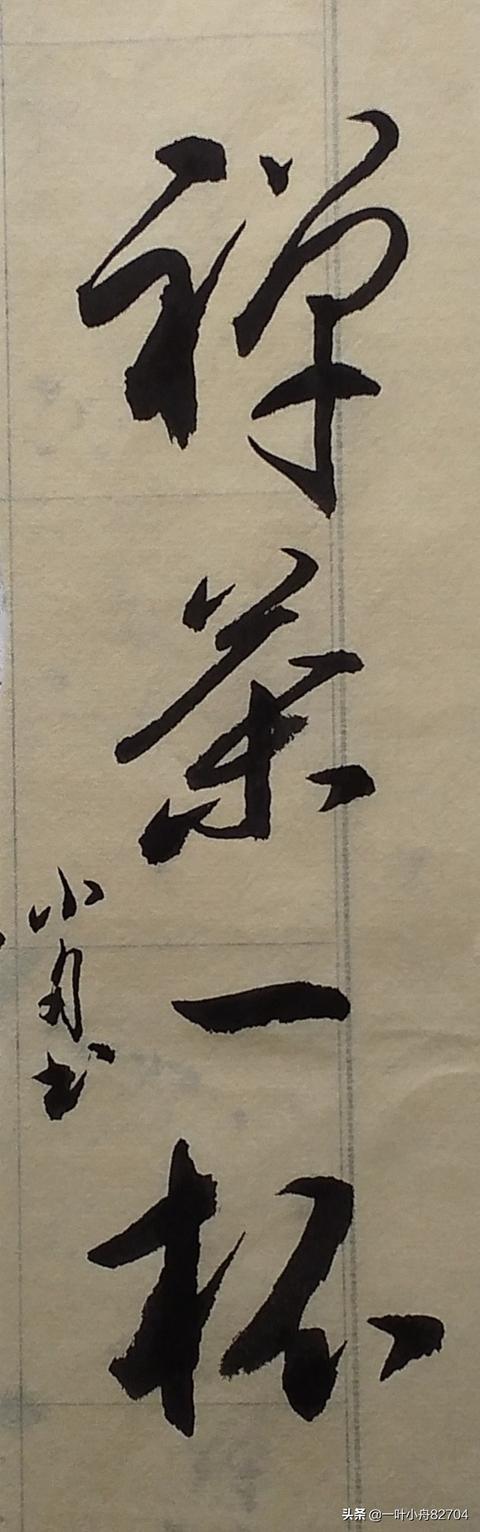 禅茶一杯
小舟书
头条 @一叶小舟82704